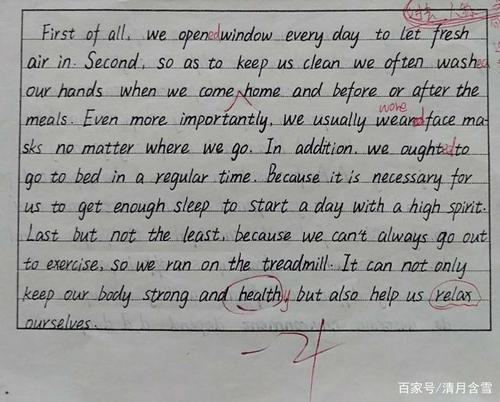 First of all, we opened window every day to let fresh
air in. Second, so as to keep us clean we often washed
our hands when we come home and before or after the
wore
meals. Even more importantly, we usually weared face ma-
sks no matter where we go. In addition, we oughted to
go to bed in a regular time. Because it is necessary for
us to get enough sleep to start a day with a high spirit.
Last but not the least, because we can't always go out
to exercise, so we ran on the treadmill. It can not only
keep our body strong and healthy but also help us relax
ourselves.
百家号/清月含雪